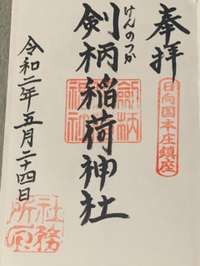 奉拝
日向国本庄鎮座
けんのつか
剣柄稲荷神社
剣柄
神社
令和二年五月二十四日
社務
所印